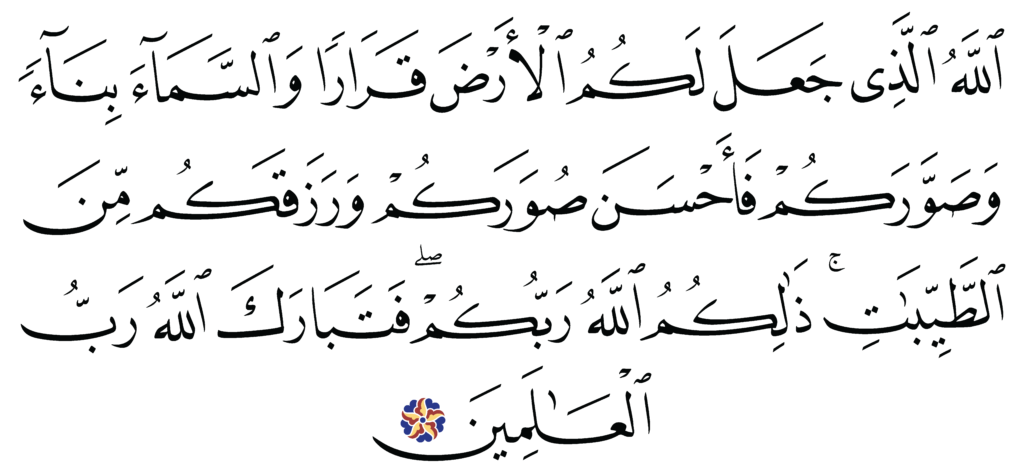 ٱللَّهُ ٱلَّذِى جَعَلَ لَكُمُ ٱلْأَرْضَ قَرَارًا وَٱلسَّمَآءَ بِنَآءً
وَصَوَّرَكُمْ فَأَحْسَنَ صُوَرَكُمْ وَرَزَقَكُم مِّنَ
ٱلطَّيِّبَٰتِ ۚ ذَٰلِكُمُ ٱللَّهُ رَبُّكُمْ ۖ فَتَبَارَكَ ٱللَّهُ رَبُّ
ٱلْعَٰلَمِينَ